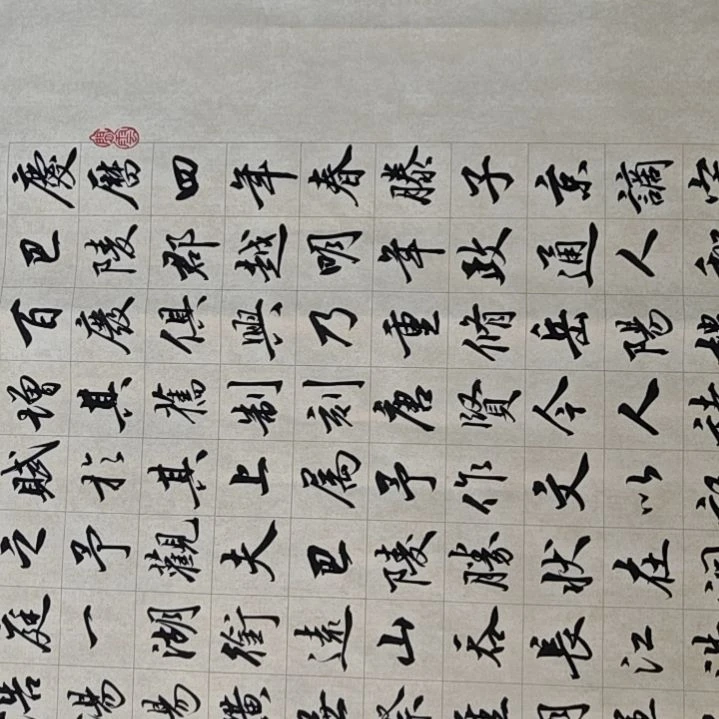 慶曆四年春滕子京謫
巴陵郡越明年政通人
百廢俱興乃重脩岳陽
增其舊制刻唐賢今人
賦於其上属予作文以
之予觀夫巴陵勝狀在
庭一湖銜遠山吞長江